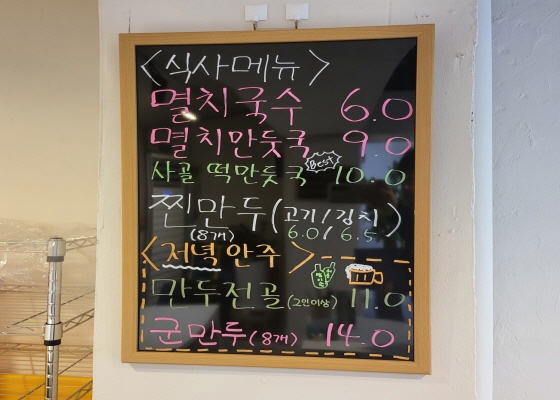 <식사메뉴>
멸치국수 6.0
멸치만둣국 9.0
Best
사골 떡만둣국 10.0
찐만두(고기/김치)
(8개) 6.0/6.5
<저녁 안주>
만두전골(2인이상) 11.0
군만두(8개) 14.0